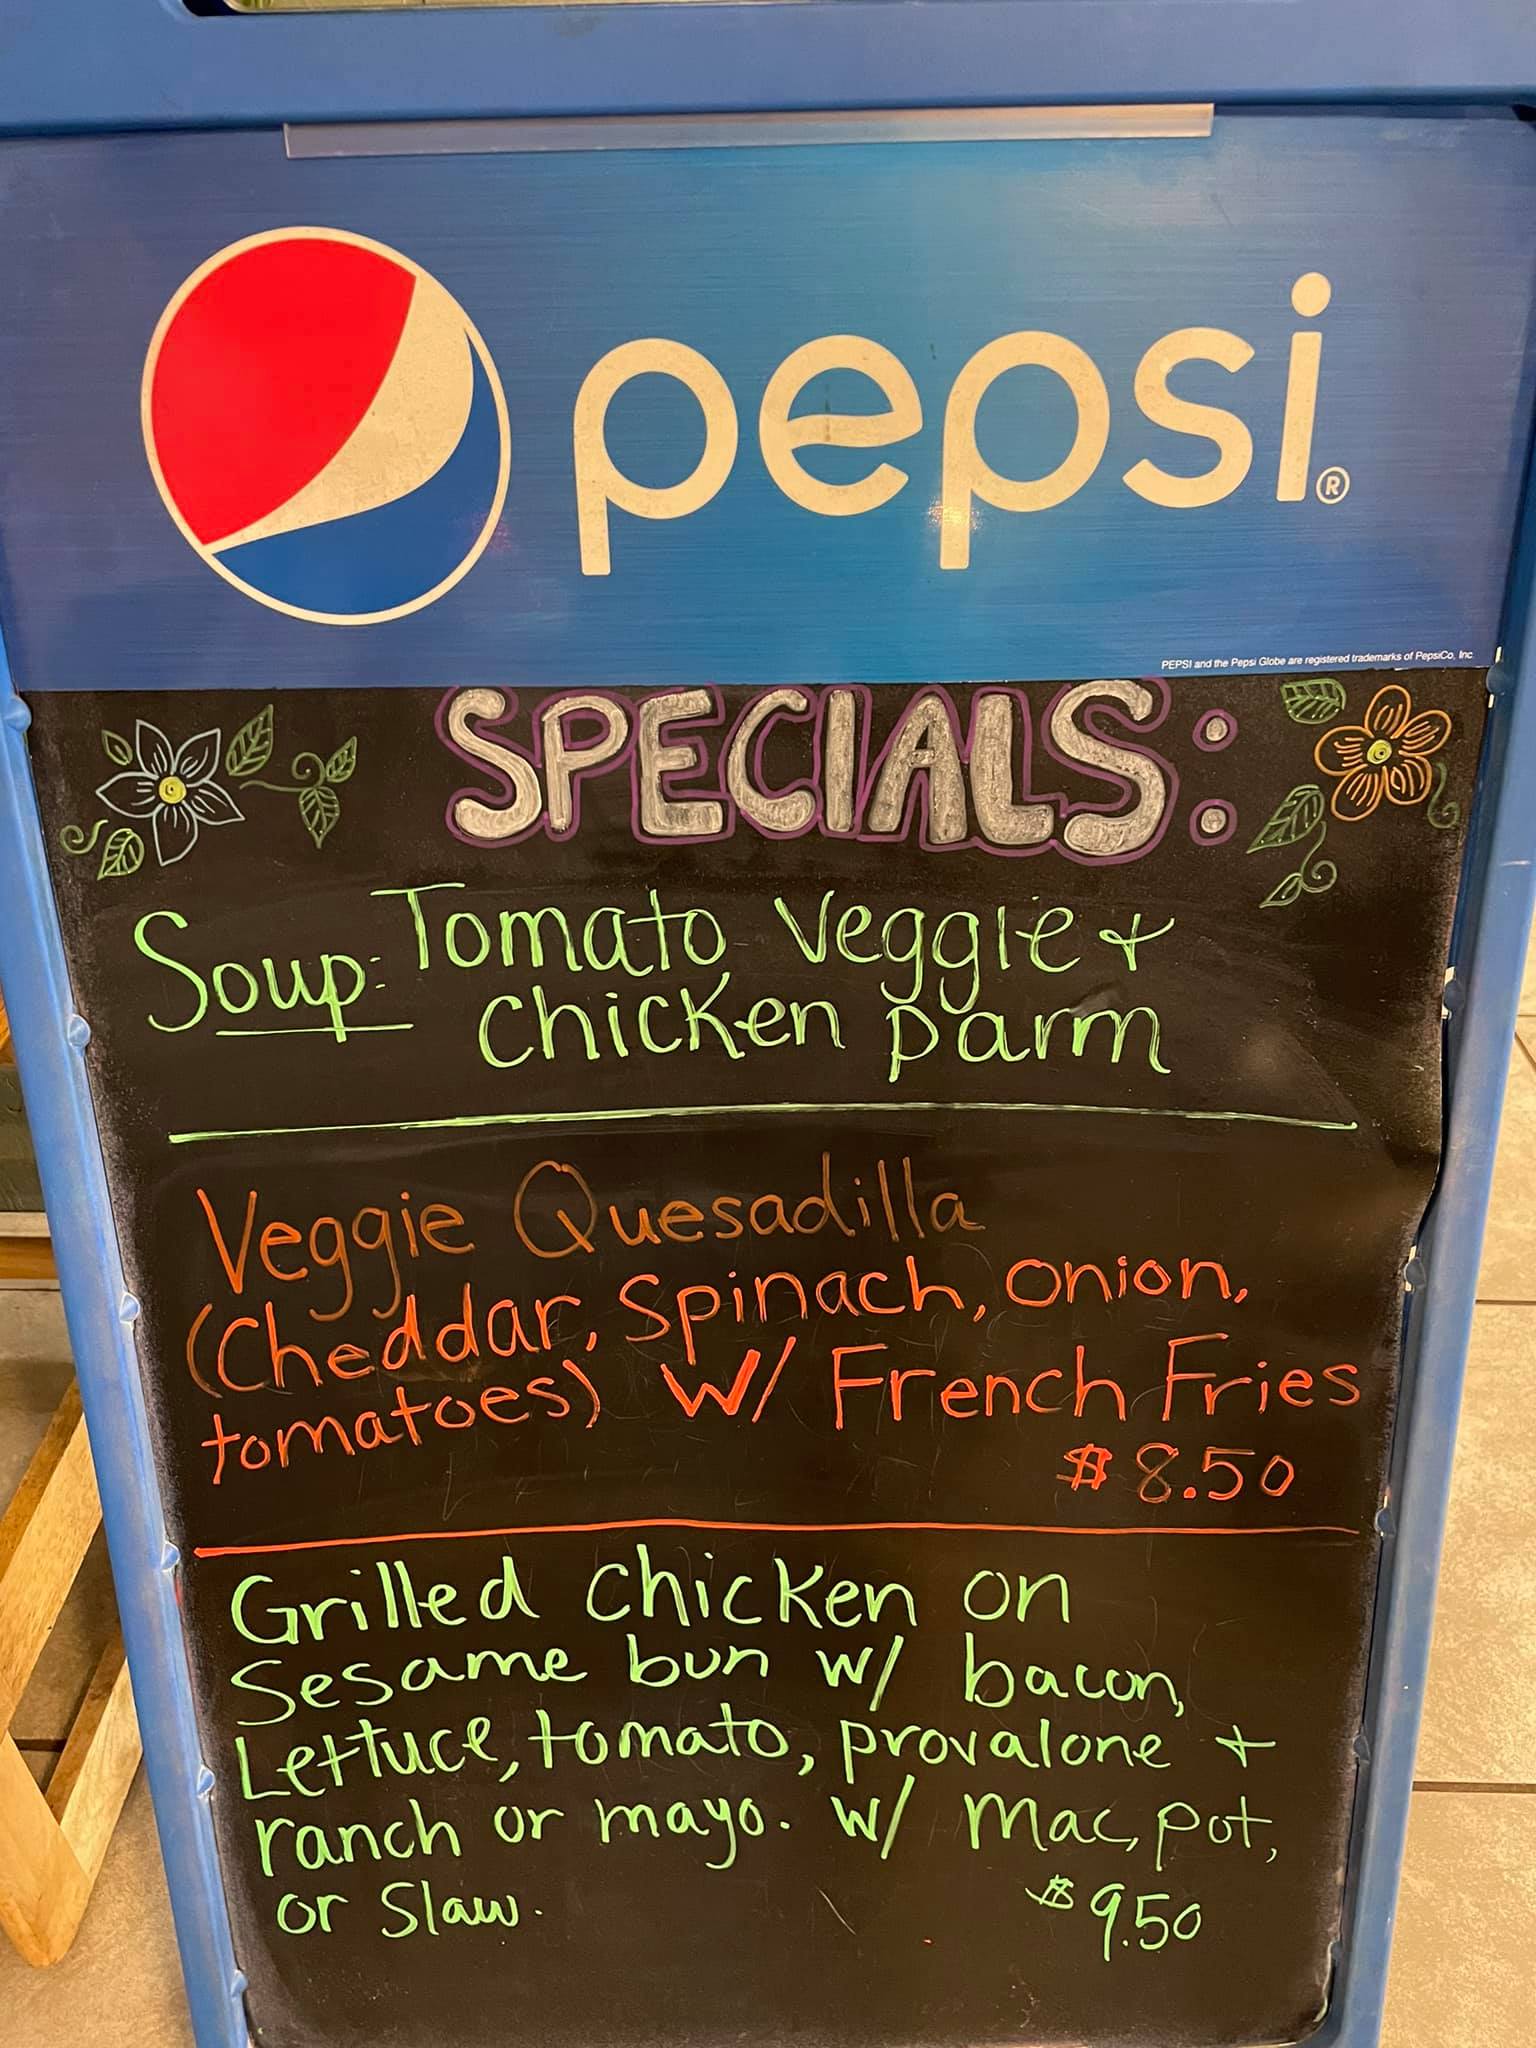 pepsi®
PEPSI and the Pepsi Globe are registered trademarks of PepsiCo, Inc.
SPECIALS:
Soup: Tomato Veggie +
Chicken parm
Veggie Quesadilla
(Cheddar, Spinach, onion,
tomatoes) W/ French Fries
$8.50
Grilled Chicken on
Sesame bun w/ bacon,
Lettuce, tomato, provalone +
ranch or mayo. w/ Mac, pot,
or Slaw.
$9.50